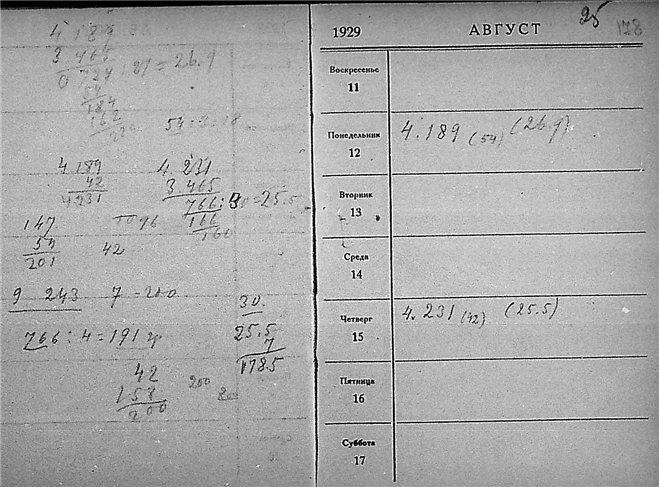 4 189
3 465
0 724 : 27 = 26.9
54
184
162
220
54 : 3 = 18
4 189
42
4231
4.231
3.465
766 : 30 = 25.5
166
160
147
54
201
42
9 243 7 - 200
30.
766 : 4 = 191 гр
25.5
7
178.5
42
158
200
200
1929 АВГУСТ 25 178
Воскресенье
11
Понедельник
12
4.189 (54) (26.9)
Вторник
13
Среда
14
Четверг
15
4.231 (42) (25.5)
Пятница
16
Суббота
17